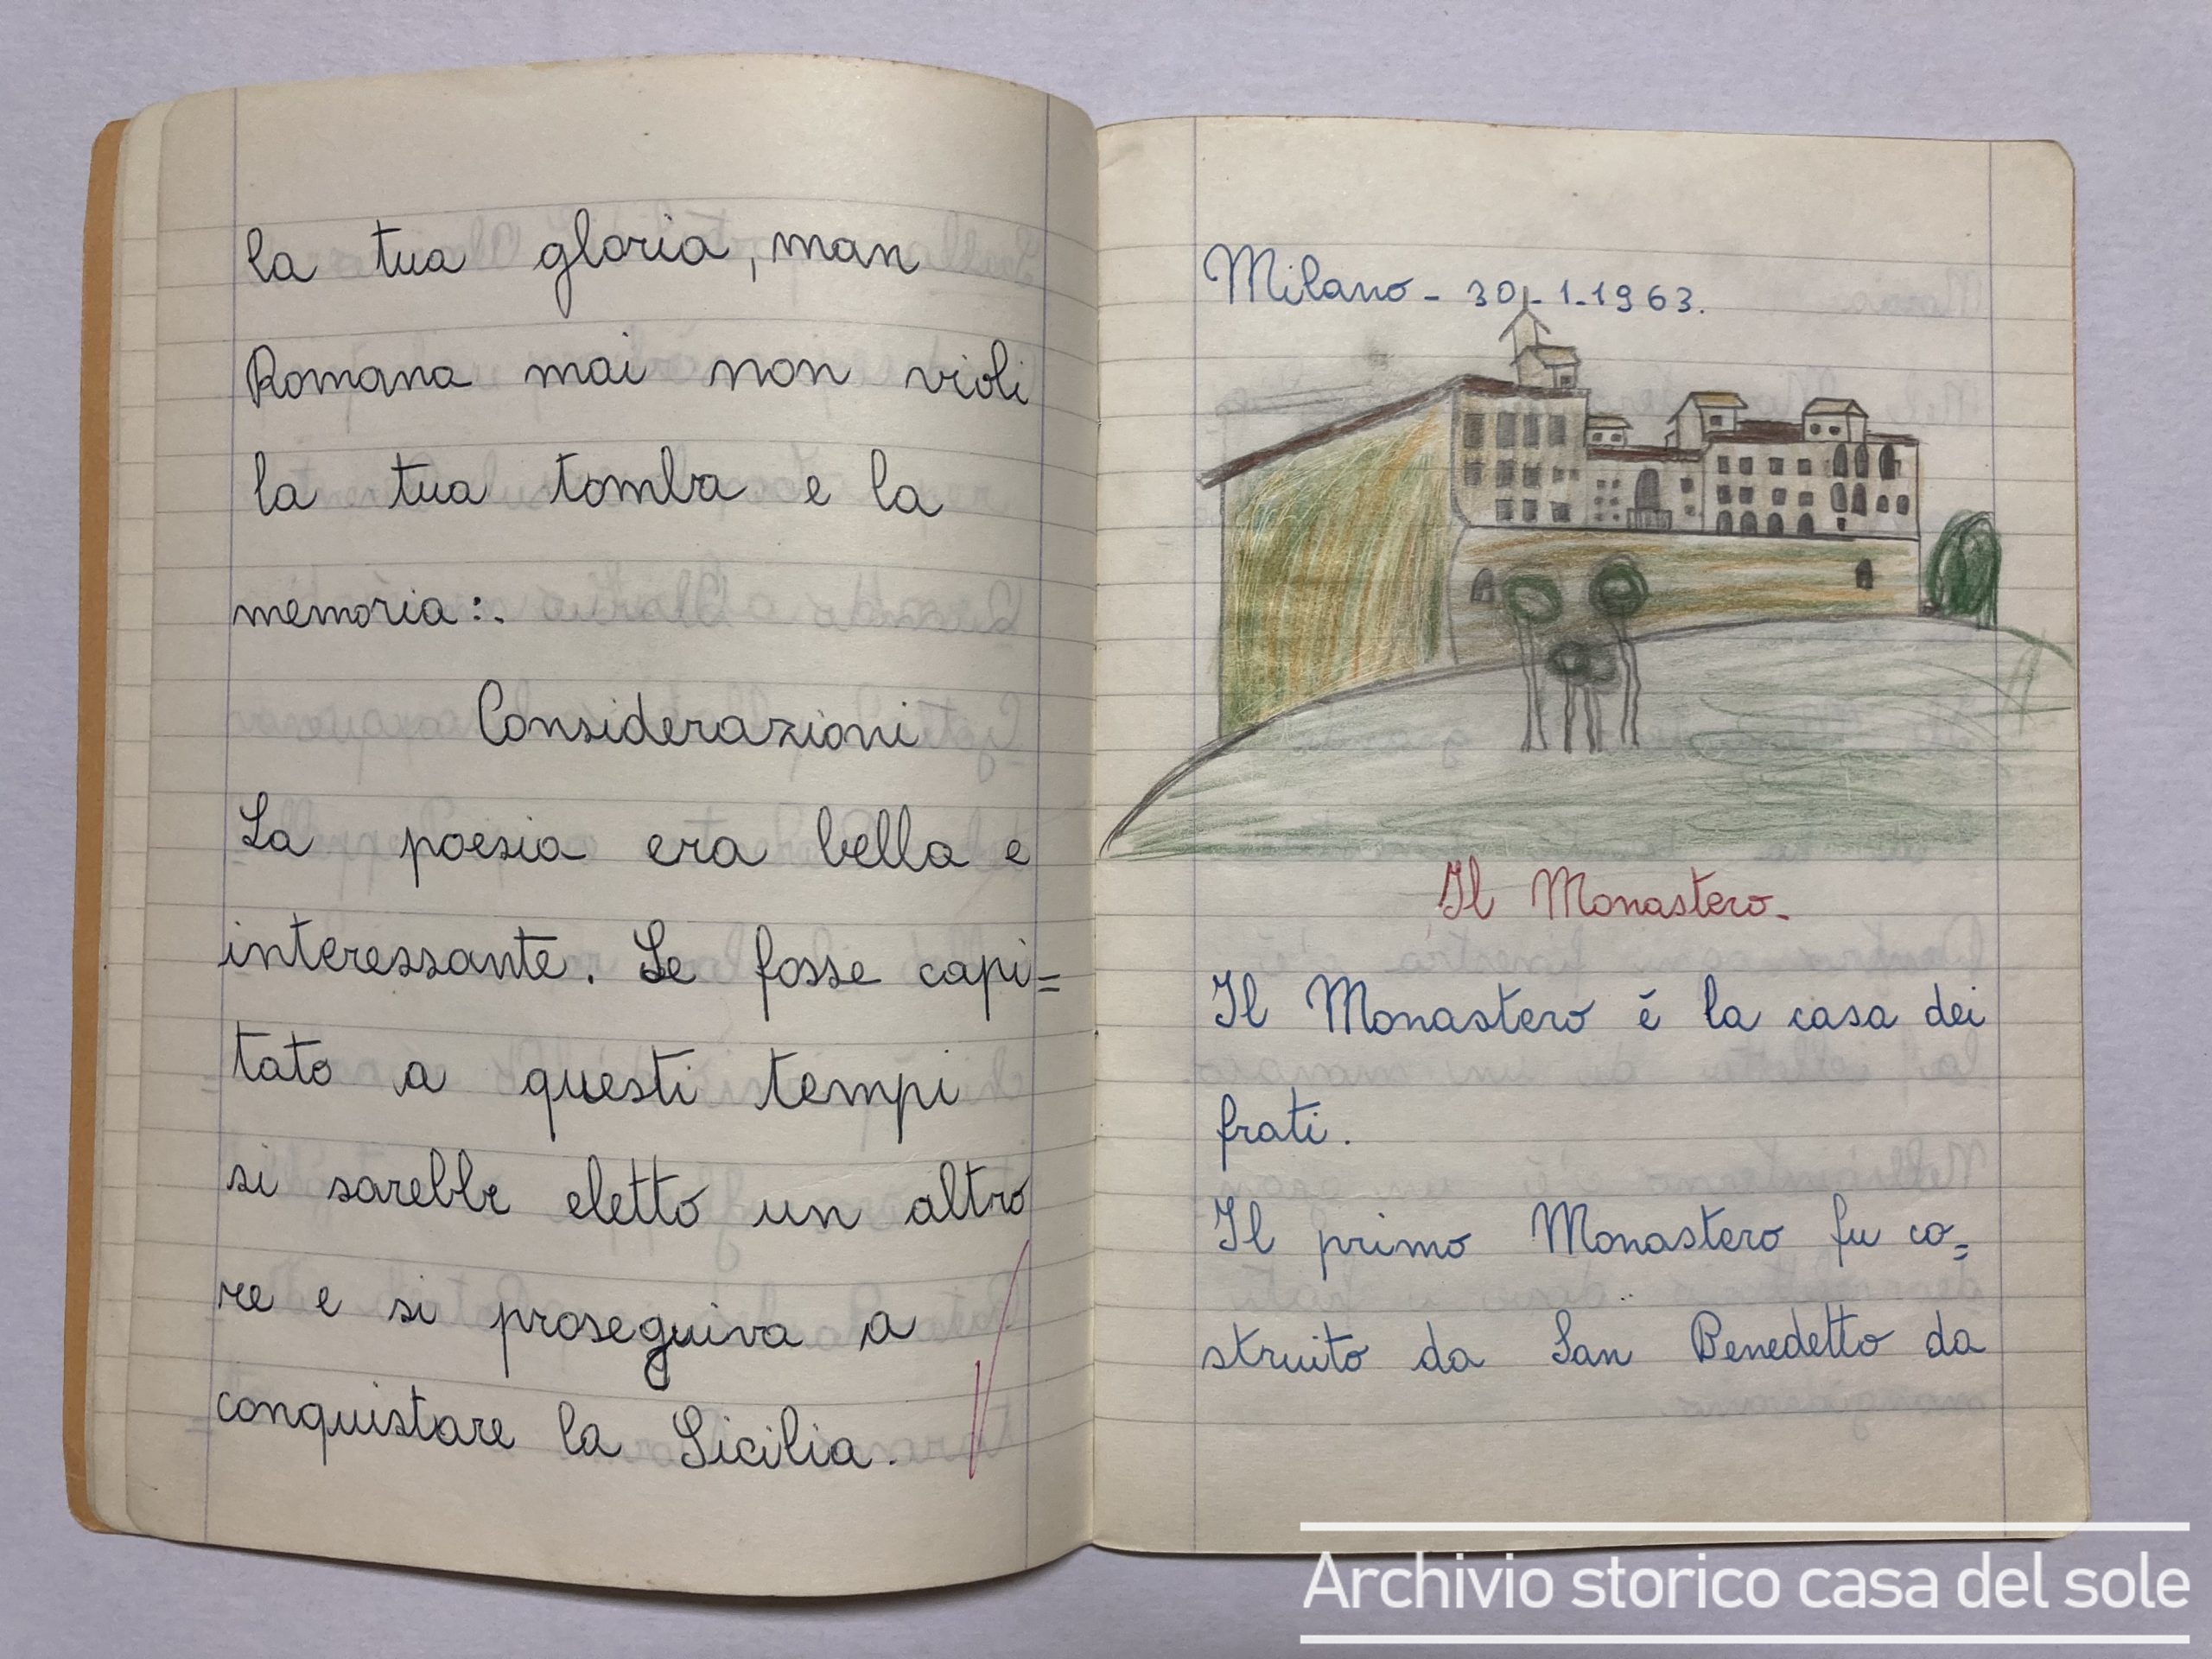 la tua gloria, man
Romana mai non violi
la tua tomba e la
memoria:.
Considerazioni
La poesia era bella e
interessante. Se fosse capi=
tato a questi tempi
si sarebbe eletto un altro
re e si proseguiva a
conquistare la Sicilia.
Milano - 30-1-1963.
Il Monastero.
Il Monastero é la casa dei
frati.
Il primo Monastero fu co=
struito da San Benedetto da
Archivio storico casa del sole